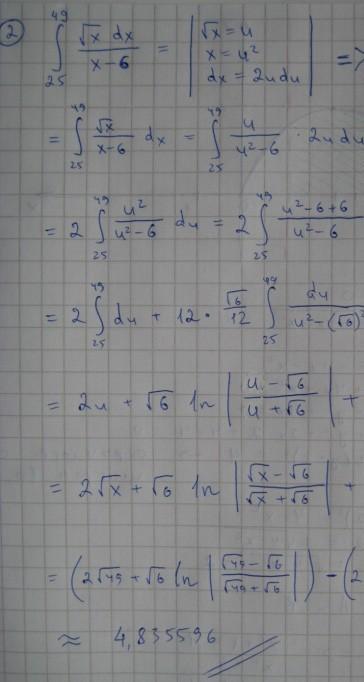 2 ∫₂₅⁴⁹ √x dx / x-6 = | √x = u
x = u²
dx = 2u du | =>
= ∫₂₅⁴⁹ √x / x-6 dx = ∫₂₅⁴⁹ u / u²-6 · 2u du
= 2 ∫₂₅⁴⁹ u² / u²-6 du = 2 ∫₂₅⁴⁹ u²-6+6 / u²-6
= 2 ∫₂₅⁴⁹ du + 12 · √6 / 12 ∫₂₅⁴⁹ du / u²-(√6)²
= 2u + √6 ln | u - √6 / u + √6 | +
= 2√x + √6 ln | √x - √6 / √x + √6 | +
= (2√49 + √6 ln | √49 - √6 / √49 + √6 |) - (2
≈ 4,835596